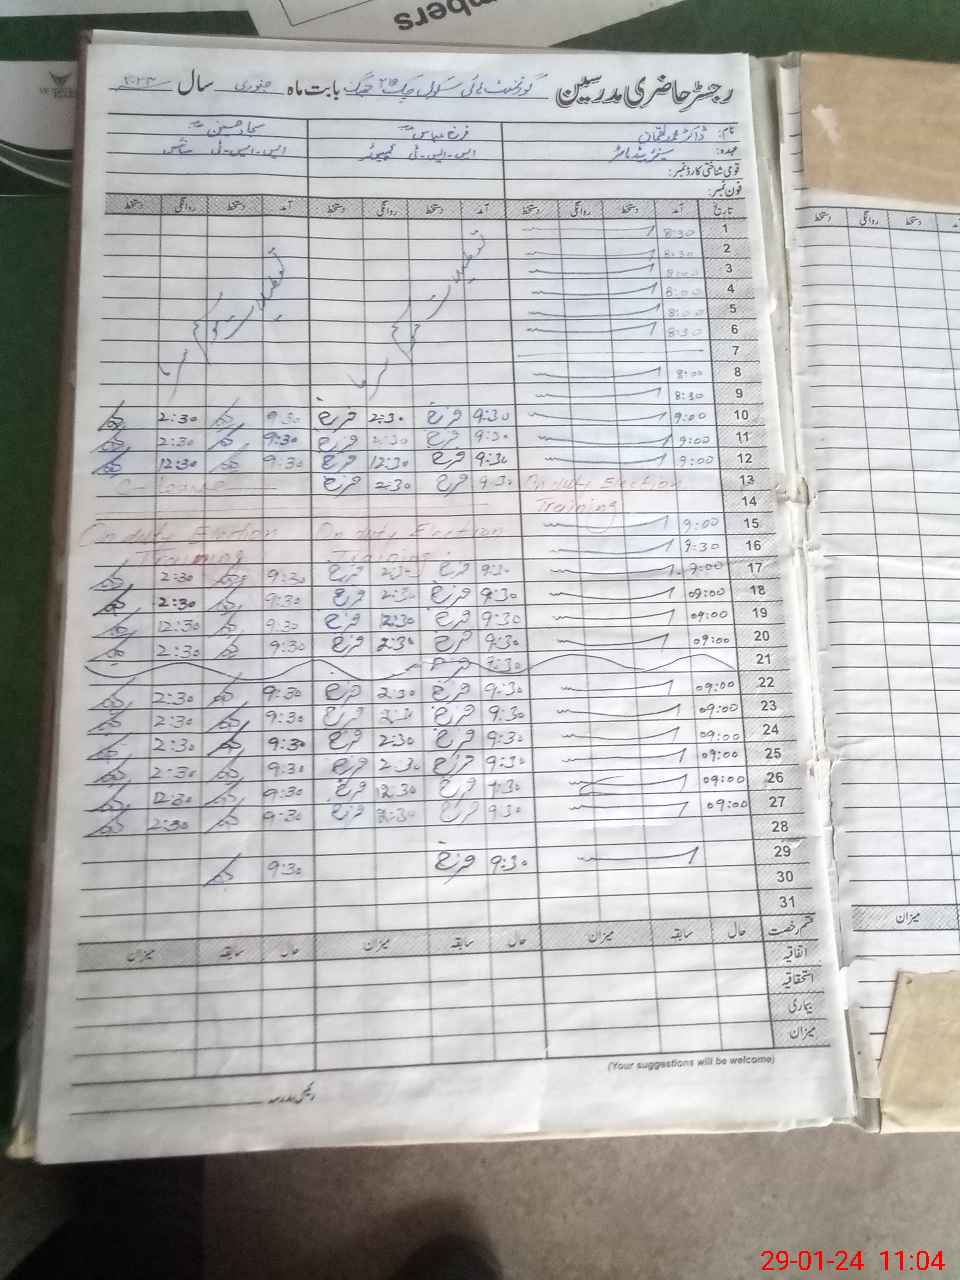 mbers
رجسٹر حاضری مدرسین گورنمنٹ ہائی سکول چک بابت ماہ جنوری سال
نام: ڈاکٹر محمد لقمان فرخ عباس سجاد حسین
عہدہ: سینئر ہیڈ ماسٹر ایس-ایس-ٹی کمپیوٹر ایس-ایس-ٹی سائنس
قومی شناختی کارڈ نمبر:
فون نمبر:
تاریخ آمد دستخط روانگی دستخط آمد دستخط روانگی دستخط آمد دستخط روانگی دستخط
1 8:30
2 8:30
3 8:00
4 8:00
5 8:00
6 8:30
7
8 8:00
9 8:30
10 9:00 9:30 فرخ 2:30 فرخ 9:30 2:30
11 9:00 9:30 فرخ 2:30 فرخ 9:30 2:30
12 9:00 9:30 فرخ 12:30 فرخ 9:30 12:30
13 On duty Election 9:30 فرخ 2:30 فرخ C-leave
14 Training
15 9:00 On duty Election On duty Election
16 9:30 Training Training
17 9:00 9:30 فرخ 2:30 فرخ 9:30 2:30
18 09:00 9:30 فرخ 2:30 فرخ 9:30 2:30
19 09:00 9:30 فرخ 12:30 فرخ 9:30 12:30
20 09:00 9:30 فرخ 2:30 فرخ 9:30 2:30
21 9:30 فرخ
22 09:00 9:30 فرخ 2:30 فرخ 9:30 2:30
23 09:00 9:30 فرخ 2:30 فرخ 9:30 2:30
24 09:00 9:30 فرخ 2:30 فرخ 9:30 2:30
25 09:00 9:30 فرخ 2:30 فرخ 9:30 2:30
26 09:00 9:30 فرخ 12:30 فرخ 9:30 12:30
27 09:00 9:30 فرخ 2:30 فرخ 9:30 2:30
28
29 9:30 فرخ 9:30
30
31
قسم رخصت حال سابقہ میزان حال سابقہ میزان حال سابقہ میزان
اتفاقیہ
استحقاقیہ
بیماری
میزان
(Your suggestions will be welcome)
رئیس مدرسہ
دستخط روانگی دستخط آمد
میزان
29-01-24 11:04